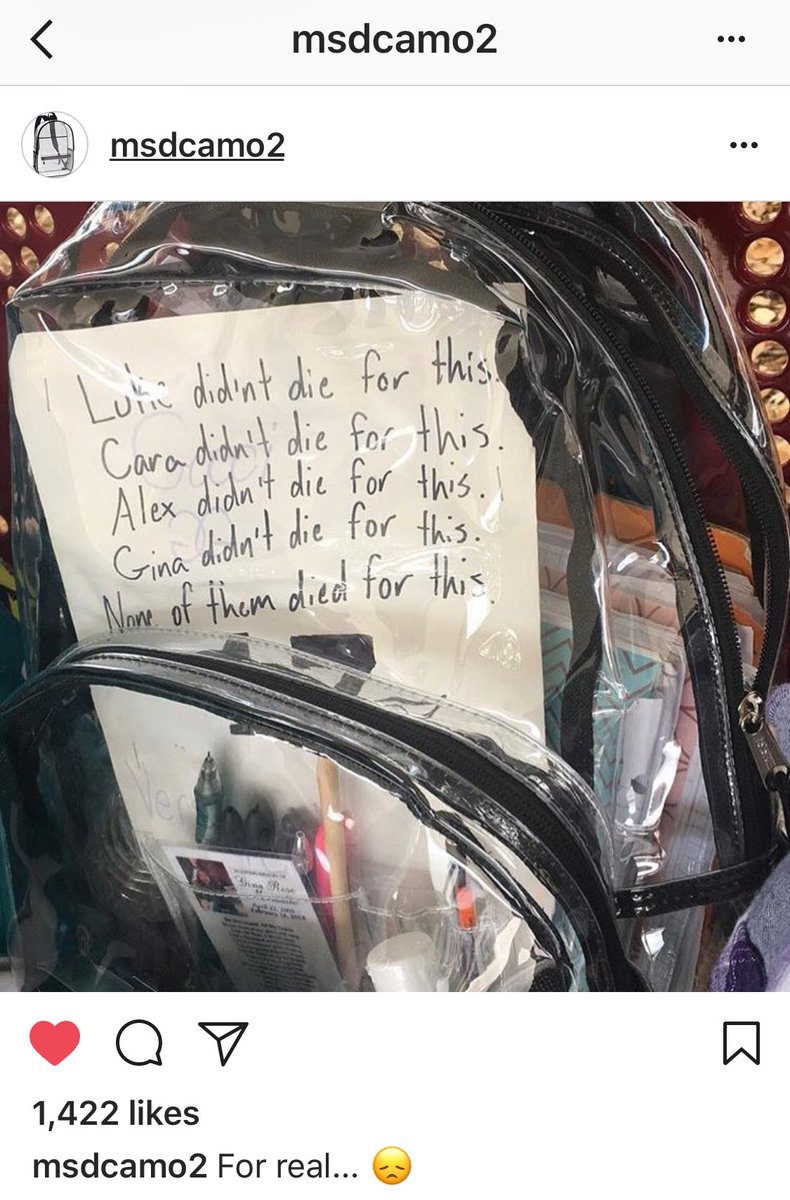 msdcamo2
msdcamo2
Luke didn't die for this.
Cara didn't die for this.
Alex didn't die for this.
Gina didn't die for this.
None of them died for this.
Ver
Gina Rose
1,422 likes
msdcamo2 For real... 😞